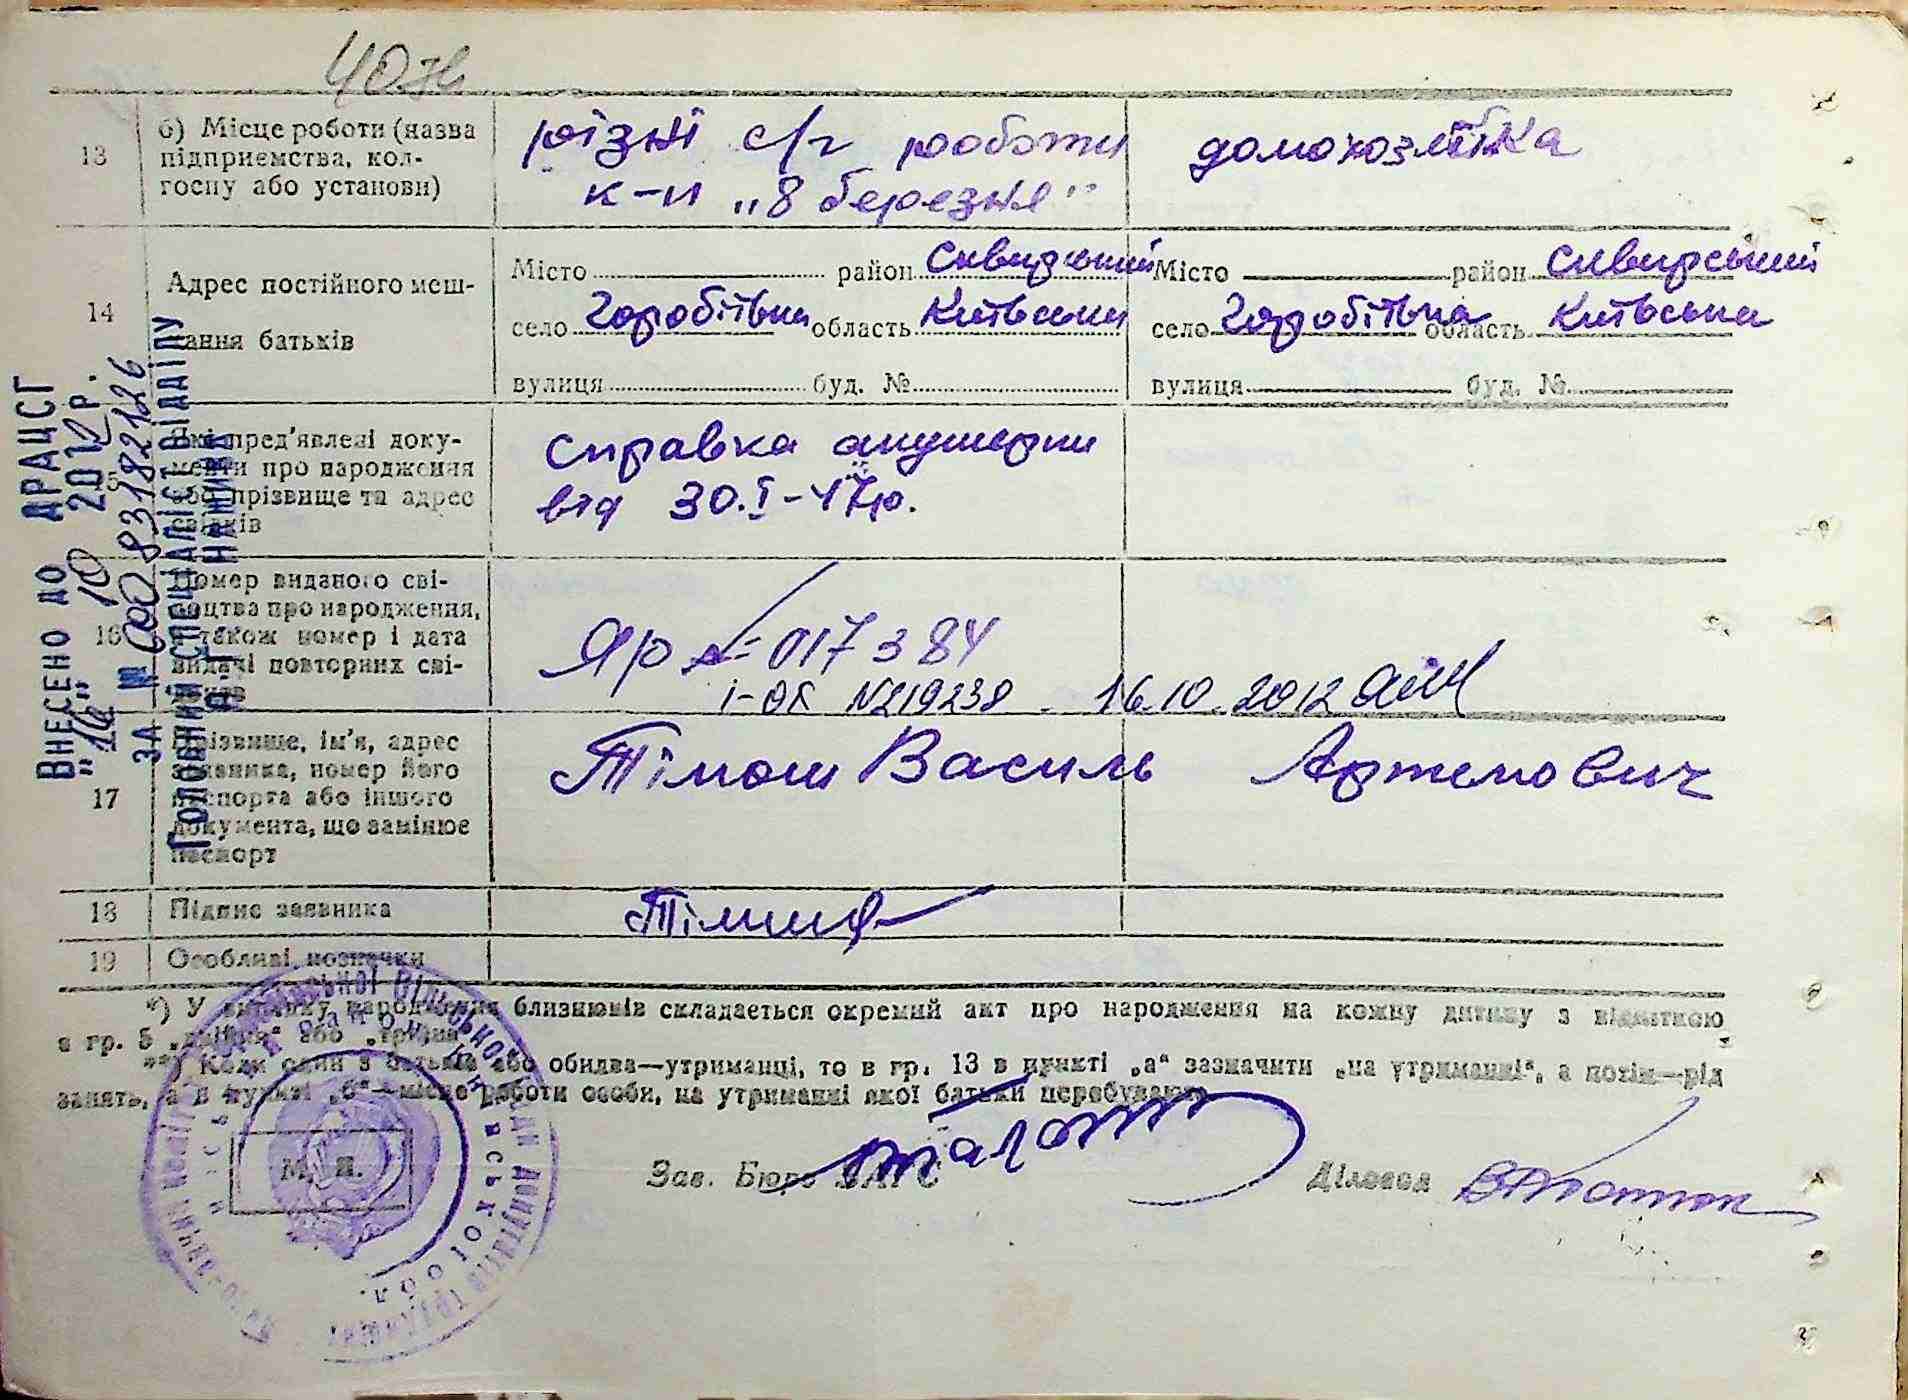 40 зв
13
б) Місце роботи (назва підприємства, колгоспу або установи)
різні с/г роботи
к-п „8 березня"
домохозяйка
14
Адрес постійного мешкання батьків
Місто район Сквирський
село Горобіївка область Київська
вулиця буд. №
Місто район Сквирський
село Горобіївка область Київська
вулиця буд. №
15
Які пред'явлені документи про народження або прізвище та адрес свідків
справка акушерки
від 30.I-47р.
16
Номер виданого свідоцтва про народження, а також номер і дата видачі повторних свідоцтв
ЯР № 017384
І-ОК №219238 16.10.2012
17
Прізвище, ім'я, адрес заявника, номер його паспорта або іншого документа, що замінює паспорт
Тімош Василь Артемович
18
Підпис заявника
19
Особливі позначки
*) У випадку народження близнюків складається окремий акт про народження на кожну дитину з відміткою
в гр. 5 „двійня" або „трійня".
**) Коли один з батьків або обидва—утриманці, то в гр. 13 в пункті „а" зазначити „на утриманні", а потім—рід
занять, а в пункті „б"—місце роботи особи, на утриманні якої батьки перебувають.
М. П.
Зав. Бюро ЗАГС
Діловод
ВНЕСЕНО ДО ДРАЦСГ
"16" 10 2012 р.
ЗА № 00083182126
ГОЛОВНИЙ СПЕЦІАЛІСТ ВІДДІЛУ